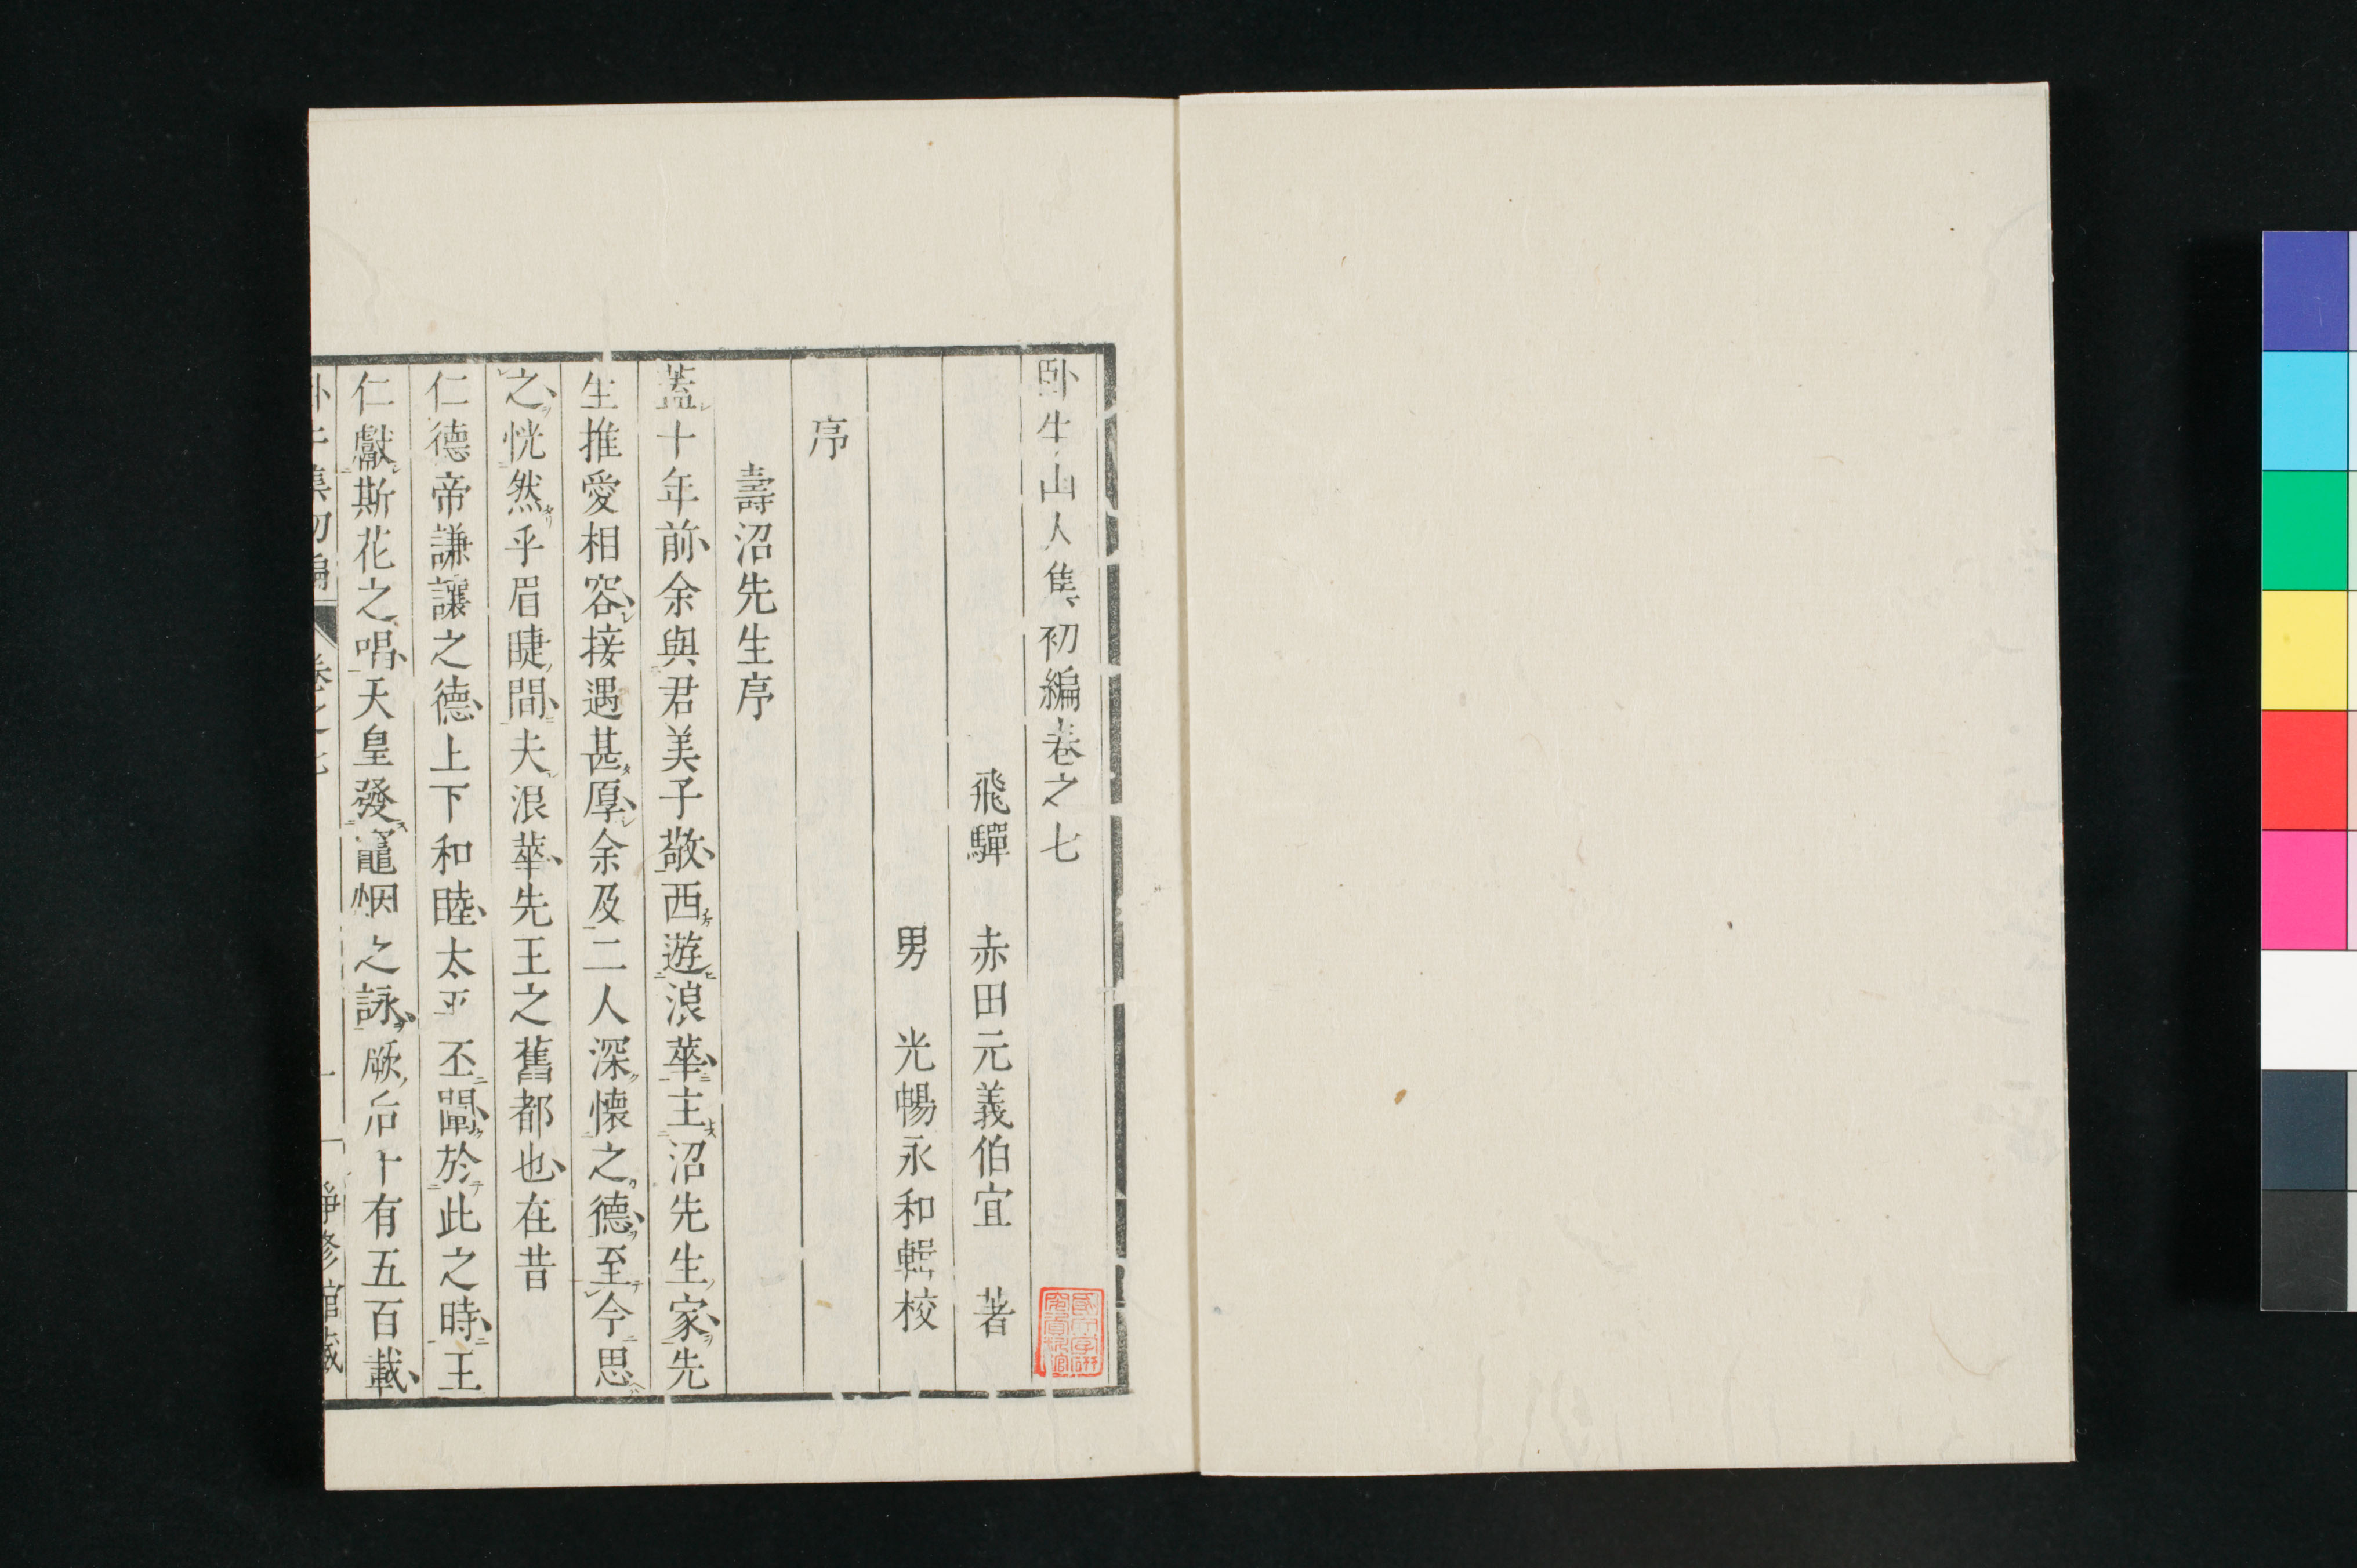 臥牛山人集初編巻之七
飛騨　赤田元義伯宜　著
男　光暢永和輯校
序
壽沼先生序
蓋十年前、余與君美子敬、西遊浪華、主沼先生家、先
生推愛相容、接遇甚厚、余及二人深懐之德、至今思
之、恍然乎眉睫間、夫浪華、先王之舊都也、在昔
仁德帝謙讓之德、上下和睦、太平丕闡、於此之時、王
仁獻斯花之唱、天皇發竈烟之詠、厥后十有五百載、